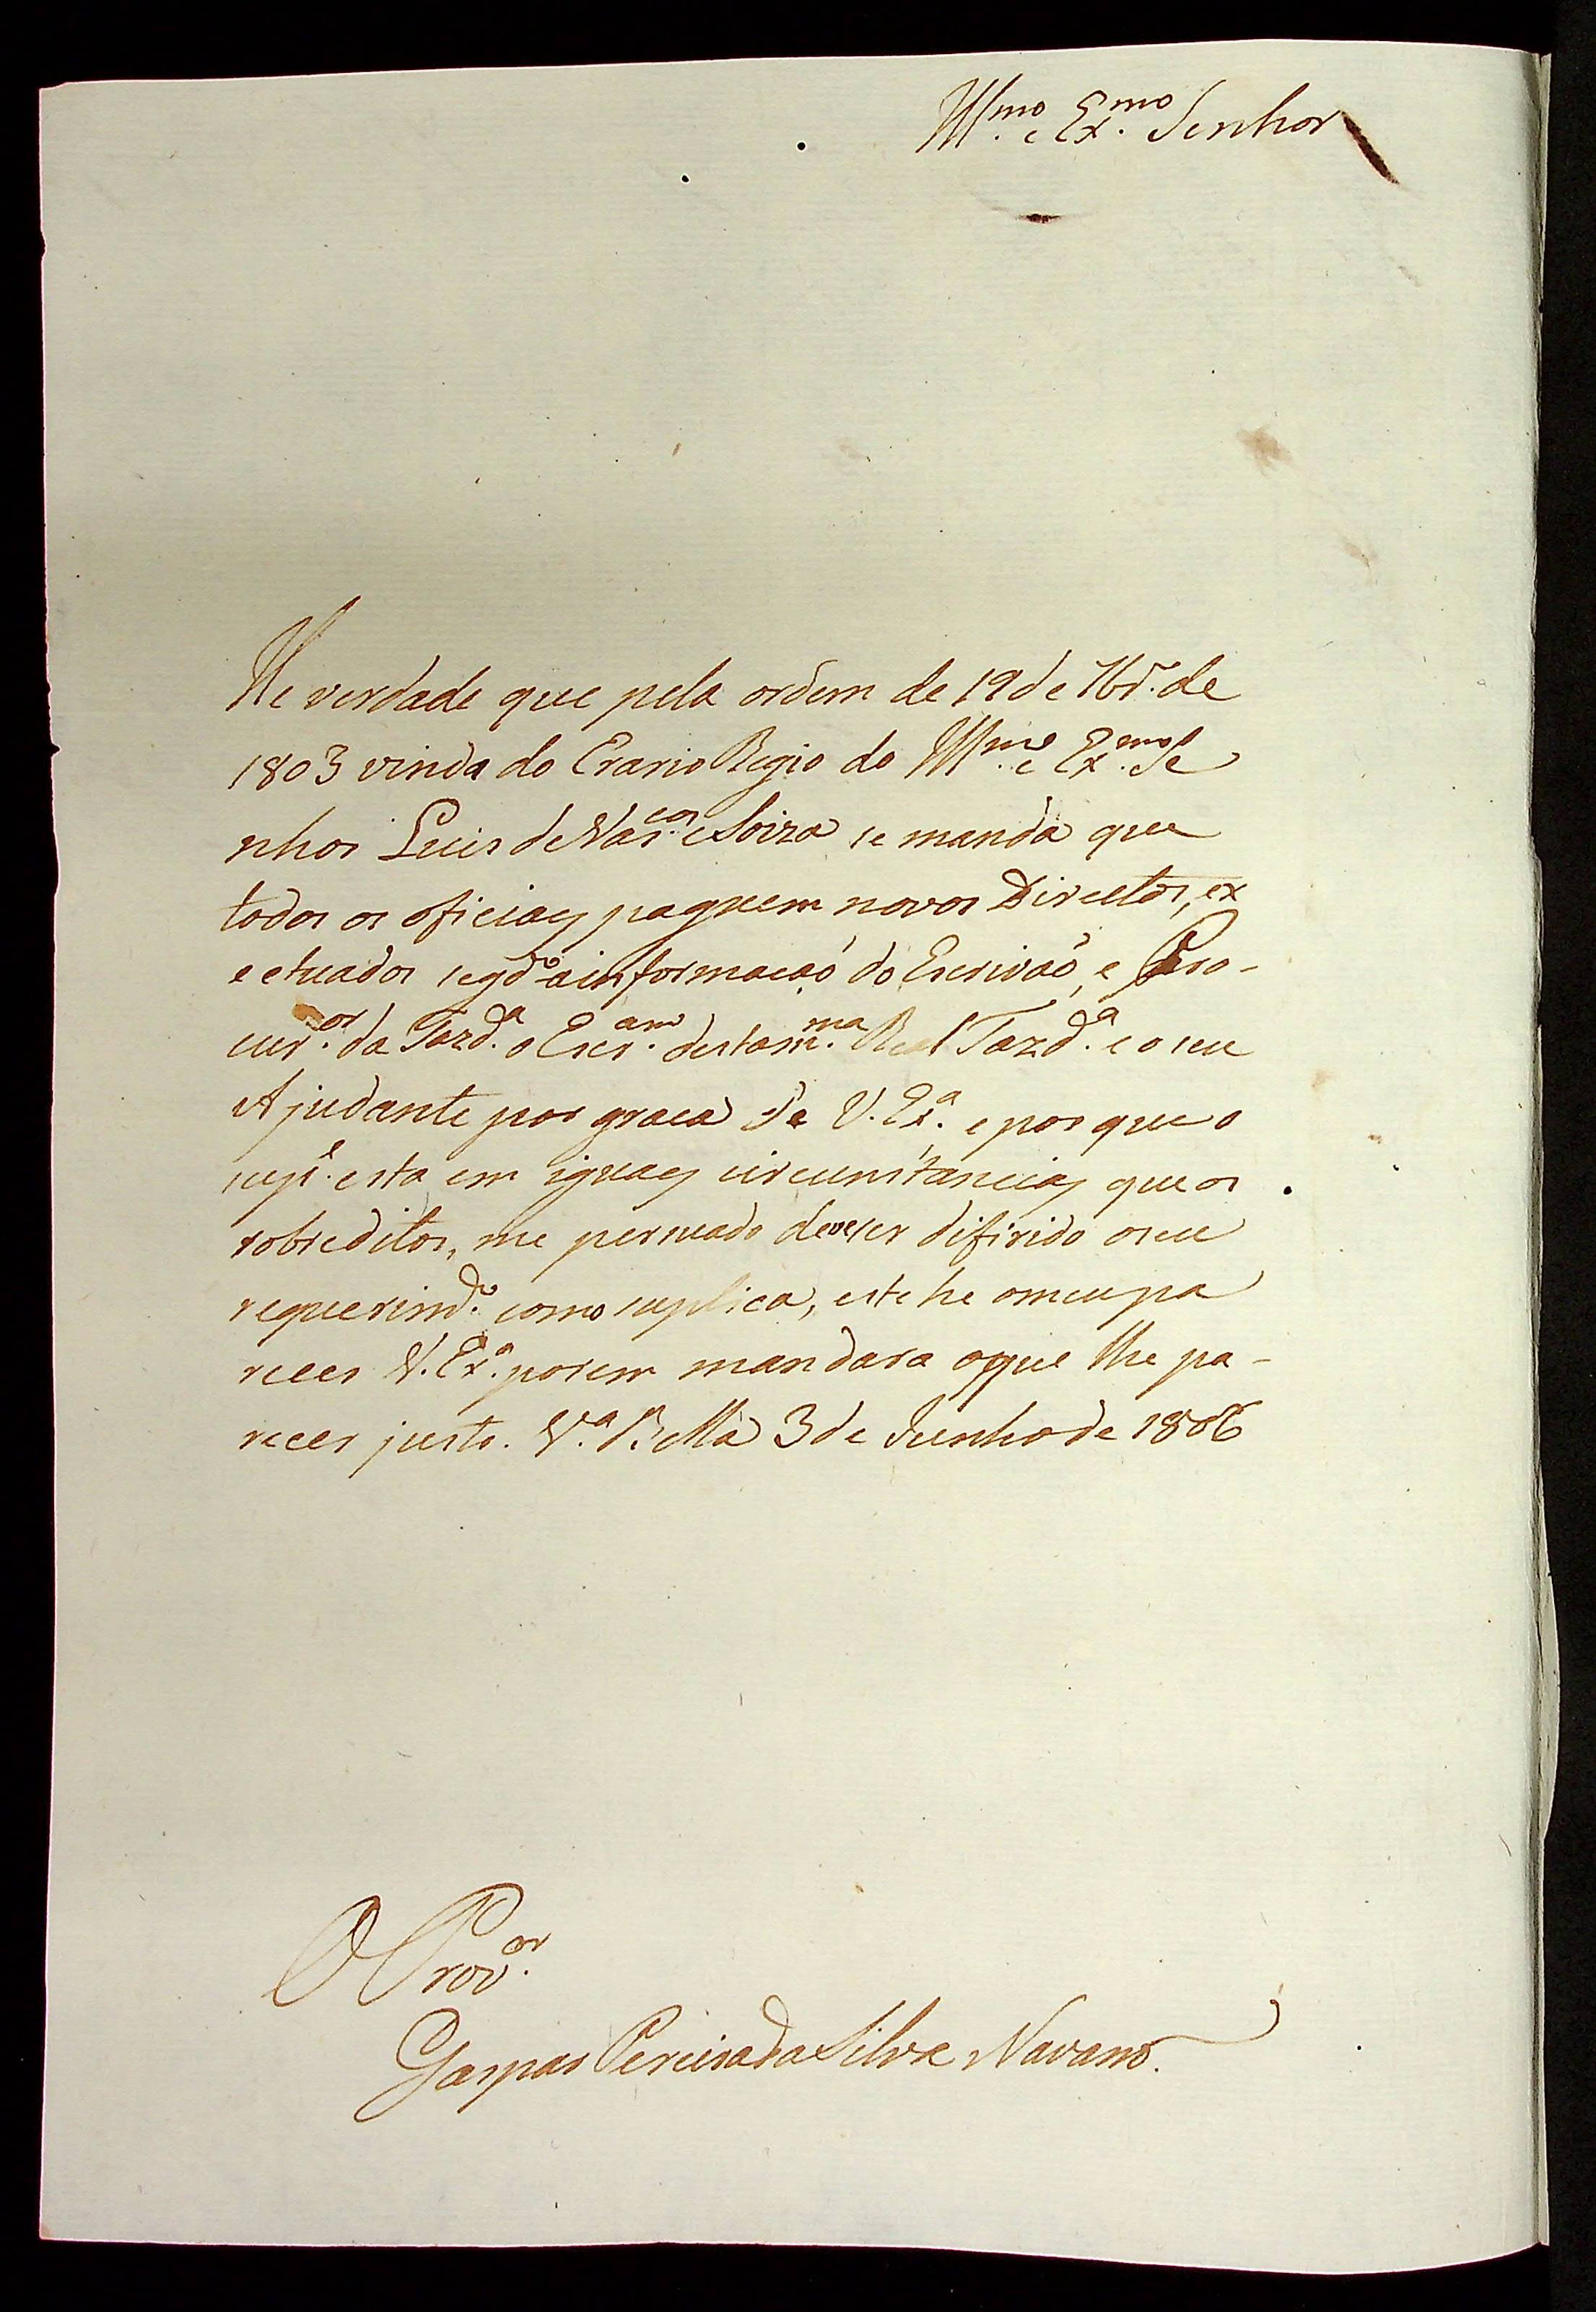 Illmo. e Exmo. Senhor
He verdade que pela ordem de 19 de 7br. de
1803 vinda do Erario Regio do Illmo. e Exmo. Se
nhor Luis de Vascos. e Soiza se manda que
todos os oficiaes paguem novos Direetos, ex
ectuados segdo. a informacaõ do Escrivaõ, e Pro-
curor. da Fazda. o Escram. desta mma. Real Fazda. e o seu
Ajudante por graca de V. Exa. e por que o
supe. esta em iguaes circunstancias que os
sobreditos, me persuado deve ser difirido o seu
requerimdo. como suplica, este he o meu pa
recer V. Exa. porem mandara o que lhe pa-
recer justo. Va. Bella 3 de Junho de 1806
O Provor.
Gaspar Pereira da Silva Navarro.